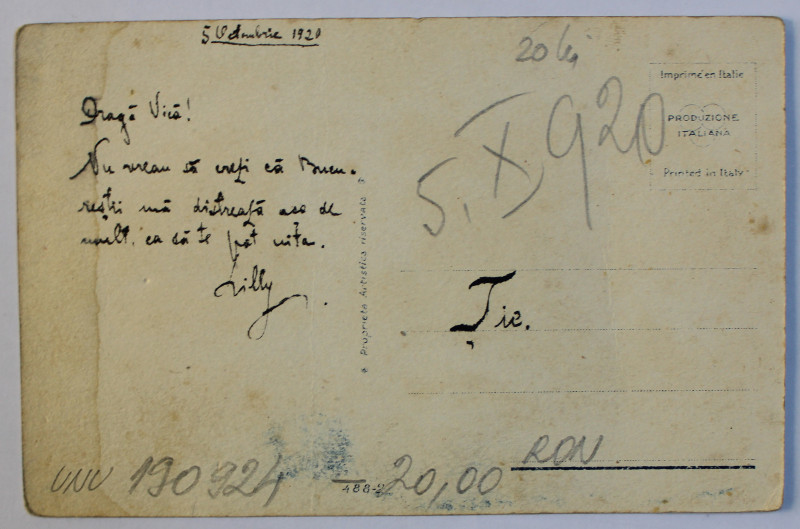 5 Octombrie 1920
Dragă Vică!
Nu vreau să crezi că Bucu-
reștii mă distrează așa de
mult, ca să te pot uita.
Lilly
20 lei
5. X 920
Imprimé en Italie
PRODUZIONE
ITALIANA
Printed in Italy
Proprietà Artistica riservata
Ție.
UNU 190924
488-2
20,00
RON